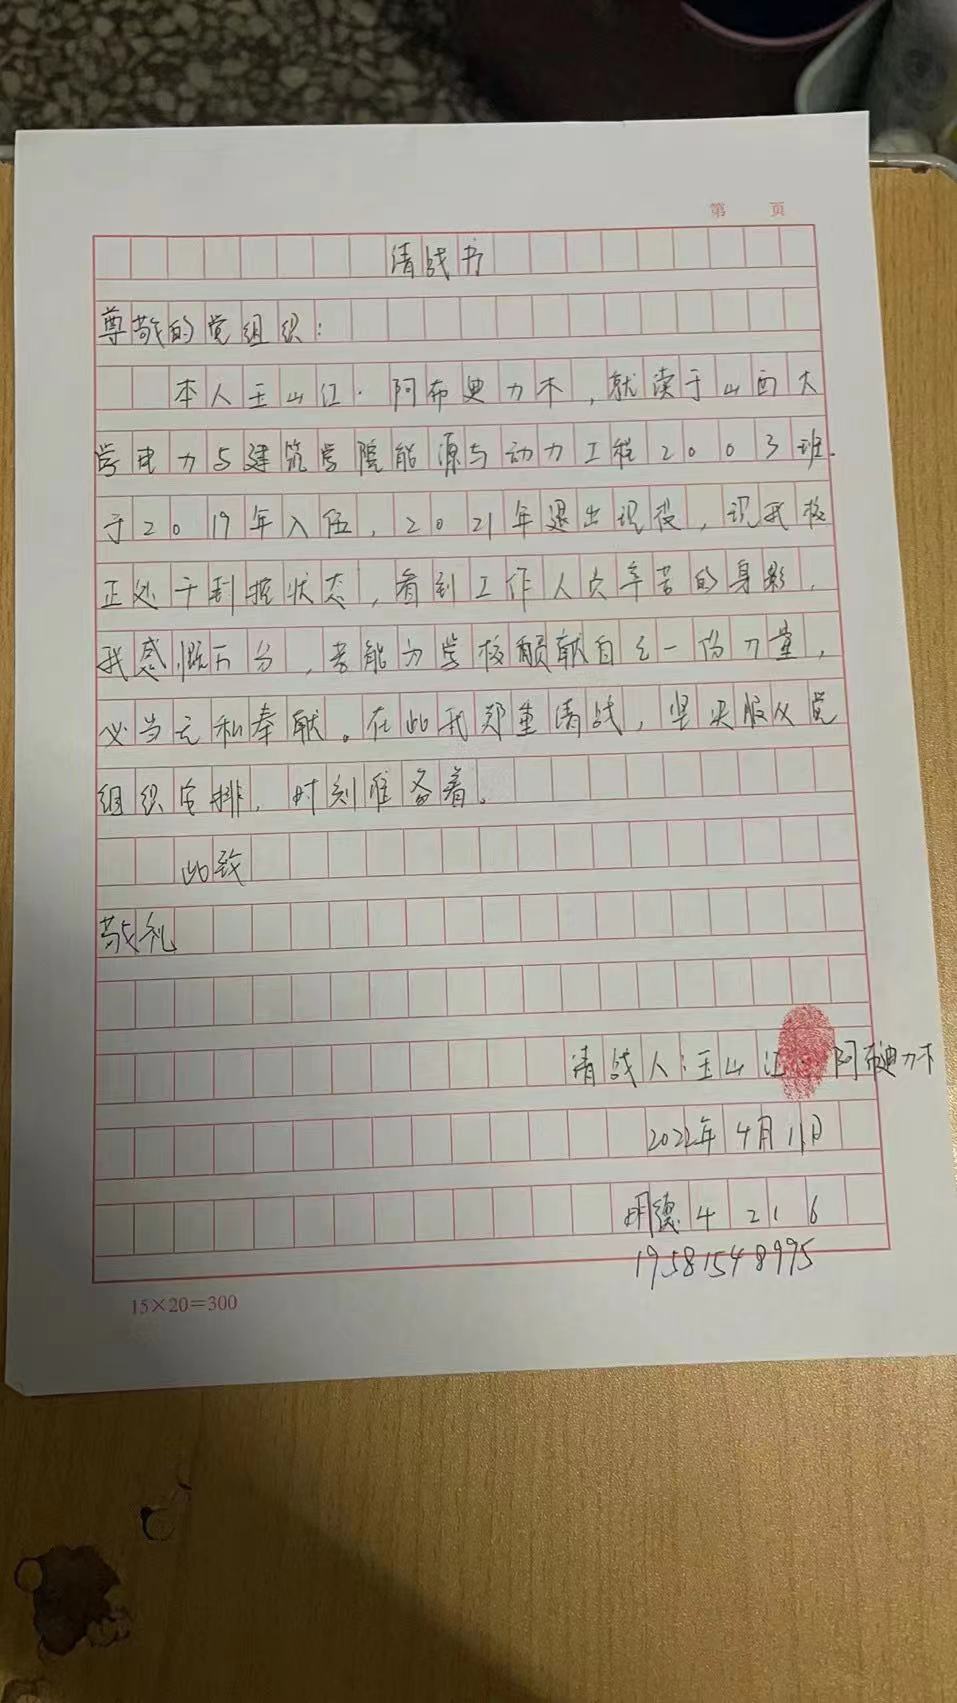 第 页
请战书
尊敬的党组织：
本人玉山江·阿布迪力木，就读于山西大
学电力与建筑学院能源与动力工程2003班.
于2019年入伍，2021年退出现役，现我校
正处于封控状态，看到工作人员辛苦的身影，
我感慨万分，若能为学校贡献自己一份力量，
必当无私奉献。在此我郑重请战，坚决服从党
组织安排，时刻准备着。
此致
敬礼
请战人：玉山江·阿布迪力木
2022年4月11日
明德4 216
19581548995
15×20=300